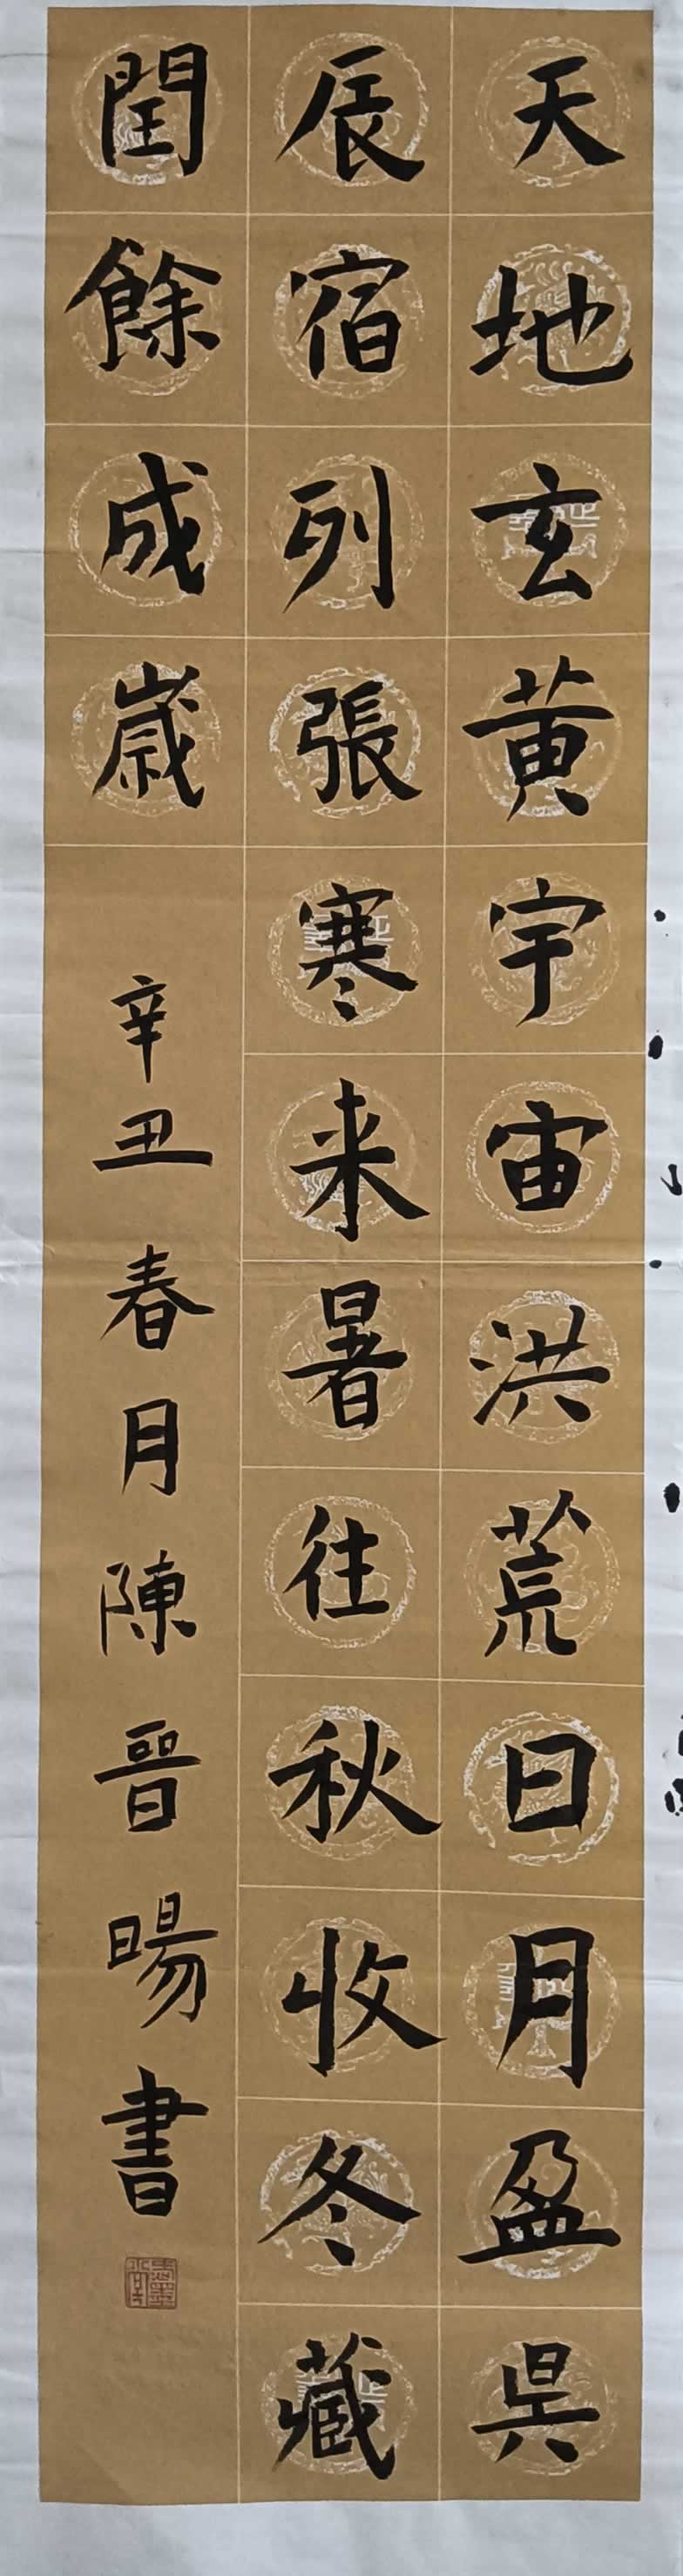 天地玄黄宇宙洪荒日月盈昃
辰宿列張寒来暑往秋收冬藏
閏餘成歳
辛丑春月陳晉暘書